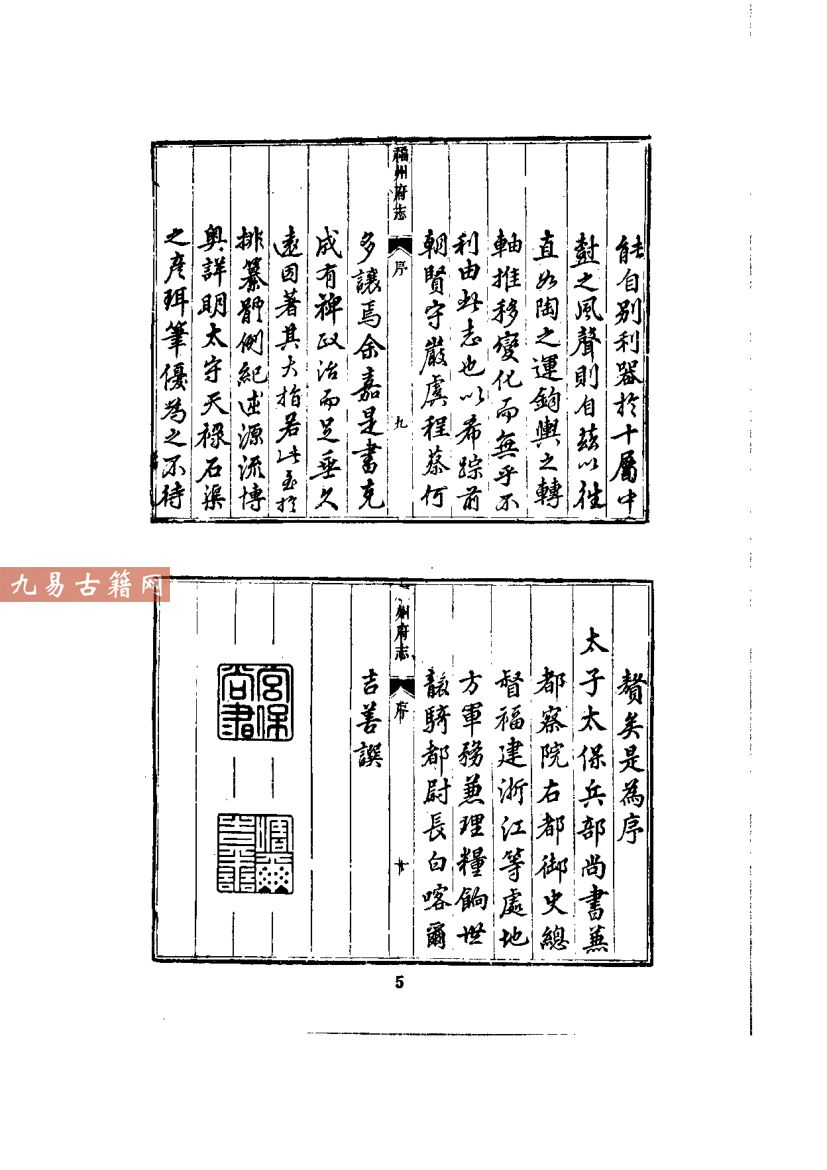 能自別利器於十屬中
對之風聲則自茲以往
直如陶之運鈞輿之轉
軸推移變化而無乎不
利由此志也以希踪前
朝賢守嚴虞程蔡何
福州府志
序
九
多讓焉余嘉是書克
成有裨政治而足垂久
遠因著其大指若此至於
排纂體例紀述源流博
奥詳明太守天祿石渠
之彦珥筆優為之不待
贅矣是為序
太子太保兵部尚書兼
都察院右都御史總
督福建浙江等處地
方軍務兼理糧餉世
襲騎都尉長白喀爾
州府志
序
十
吉善譔
宮保
尚書
九易古籍网
5